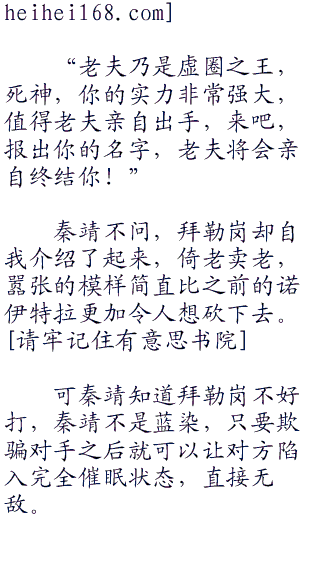 heihei168.com]
“老夫乃是虚圈之王，
死神，你的实力非常强大，
值得老夫亲自出手，来吧，
报出你的名字，老夫将会亲
自终结你！”
秦靖不问，拜勒岗却自
我介绍了起来，倚老卖老，
嚣张的模样简直比之前的诺
伊特拉更加令人想砍下去。
[请牢记住有意思书院]
可秦靖知道拜勒岗不好
打，秦靖不是蓝染，只要欺
骗对手之后就可以让对方陷
入完全催眠状态，直接无
敌。